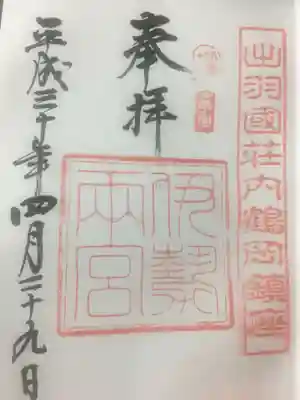 出羽國荘内鶴岡鎮座
奉拝
伊勢
両宮
平成三十年四月二十九日